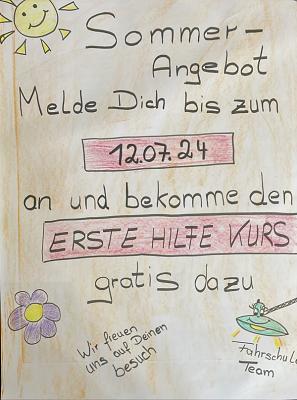 Sommer-
Angebot
Melde Dich bis zum
12.07.24
an und bekomme den
ERSTE HILFE KURS
gratis dazu
Wir freuen
uns auf Deinen
besuch
Fahrschule
Team